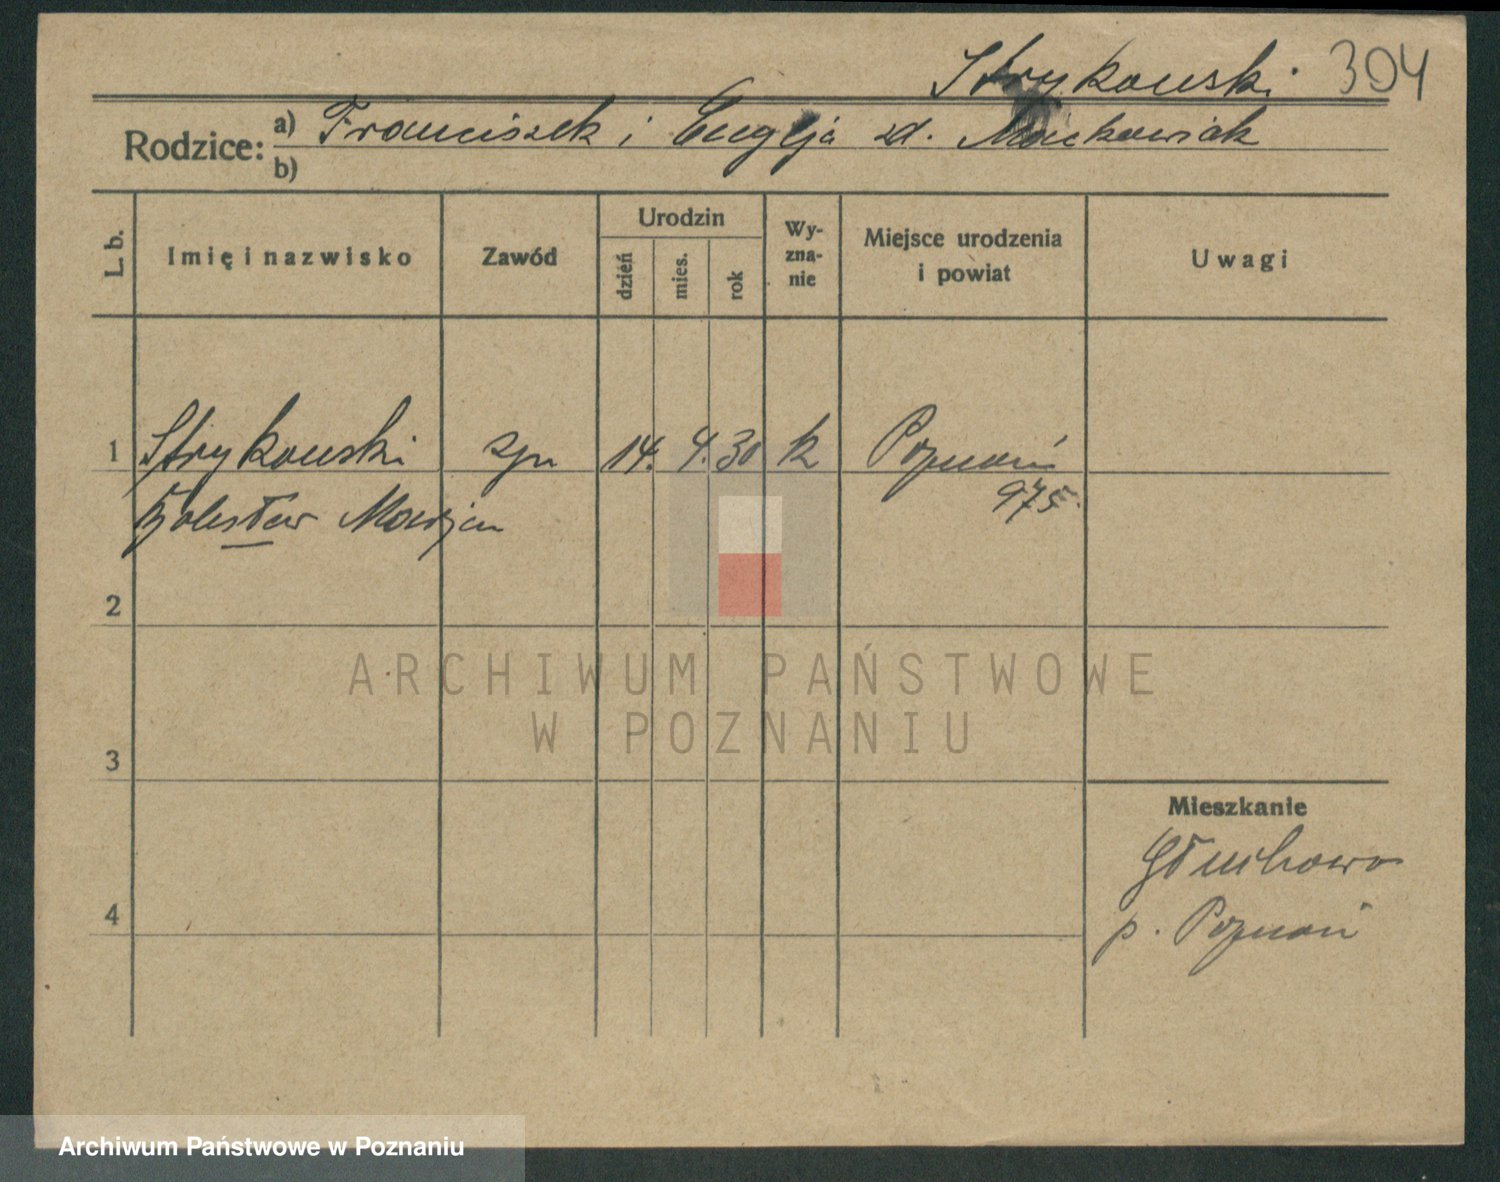 Strykowski 304
Rodzice: a) Franciszek i zd. Maćkowiak
b)
L. b. Imię i nazwisko Zawód Urodzin dzień mies. rok Wy-zna-nie Miejsce urodzenia i powiat Uwagi
1 Strykowski 14. 4. 30 k Poznań
Bolesław Marjan 975
2
3
Mieszkanie
Głuchowo
4
p. Poznań
ARCHIWUM PAŃSTWOWE
W POZNANIU
Archiwum Państwowe w Poznaniu